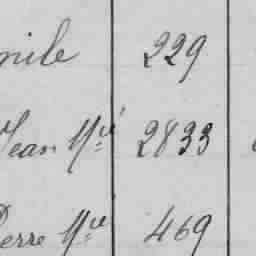 mile 229
Jean Mie 2833
Pierre Mie 469